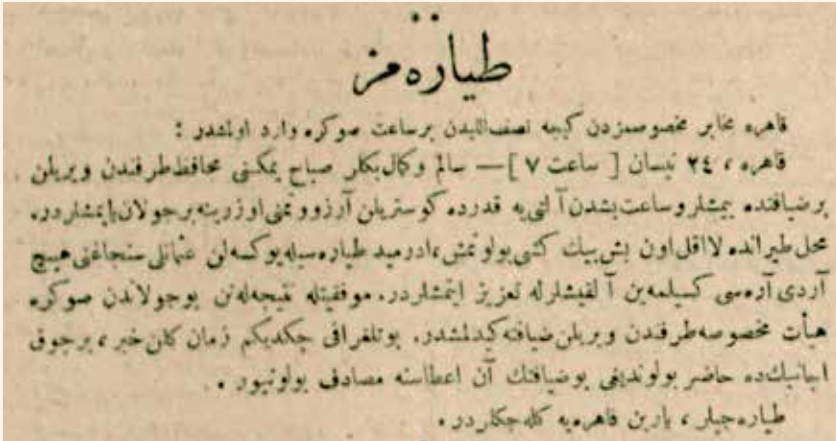 طياره‌مز
قاهره مخابر مخصوصمزدن كيجه نصف‌الليدن برساعت صوكره وارد اولمشدر :
قاهره ، ٢٤ نيسان [ ساعت ٧ ] — سالم وكمال‌بكلر صباح يمكنى محافظ طرفندن ويريلن
برضيافتده يمشلر وساعت بشدن آلتى‌يه قدرده كوستريلن آرزو و تمنى اوزرينه برجولان ايتمشلردر.
محل طيرانده لااقل اون بش بيك كشى بولونمش، ادرميد طياره‌سيله يوكسه‌لن عثمانلى سنجاغنى هيچ
آردى آره‌سى كسيلمه‌ين آلقيشلرله تعزيز ايتمشلردر. موفقيتله نتيجه‌له‌نن بوجولاندن صوكره
هيأت مخصوصه طرفندن ويريلن ضيافته كيدلمشدر. بوتلغرافى چكديكم زمان كلن خبر، برچوق
اجانبك‌ده حاضر بولونديغى بوضيافتك آن اعطاسنه مصادف بولونيور .
طياره‌جيلر ، يارين قاهره‌يه كله‌جكلردر .